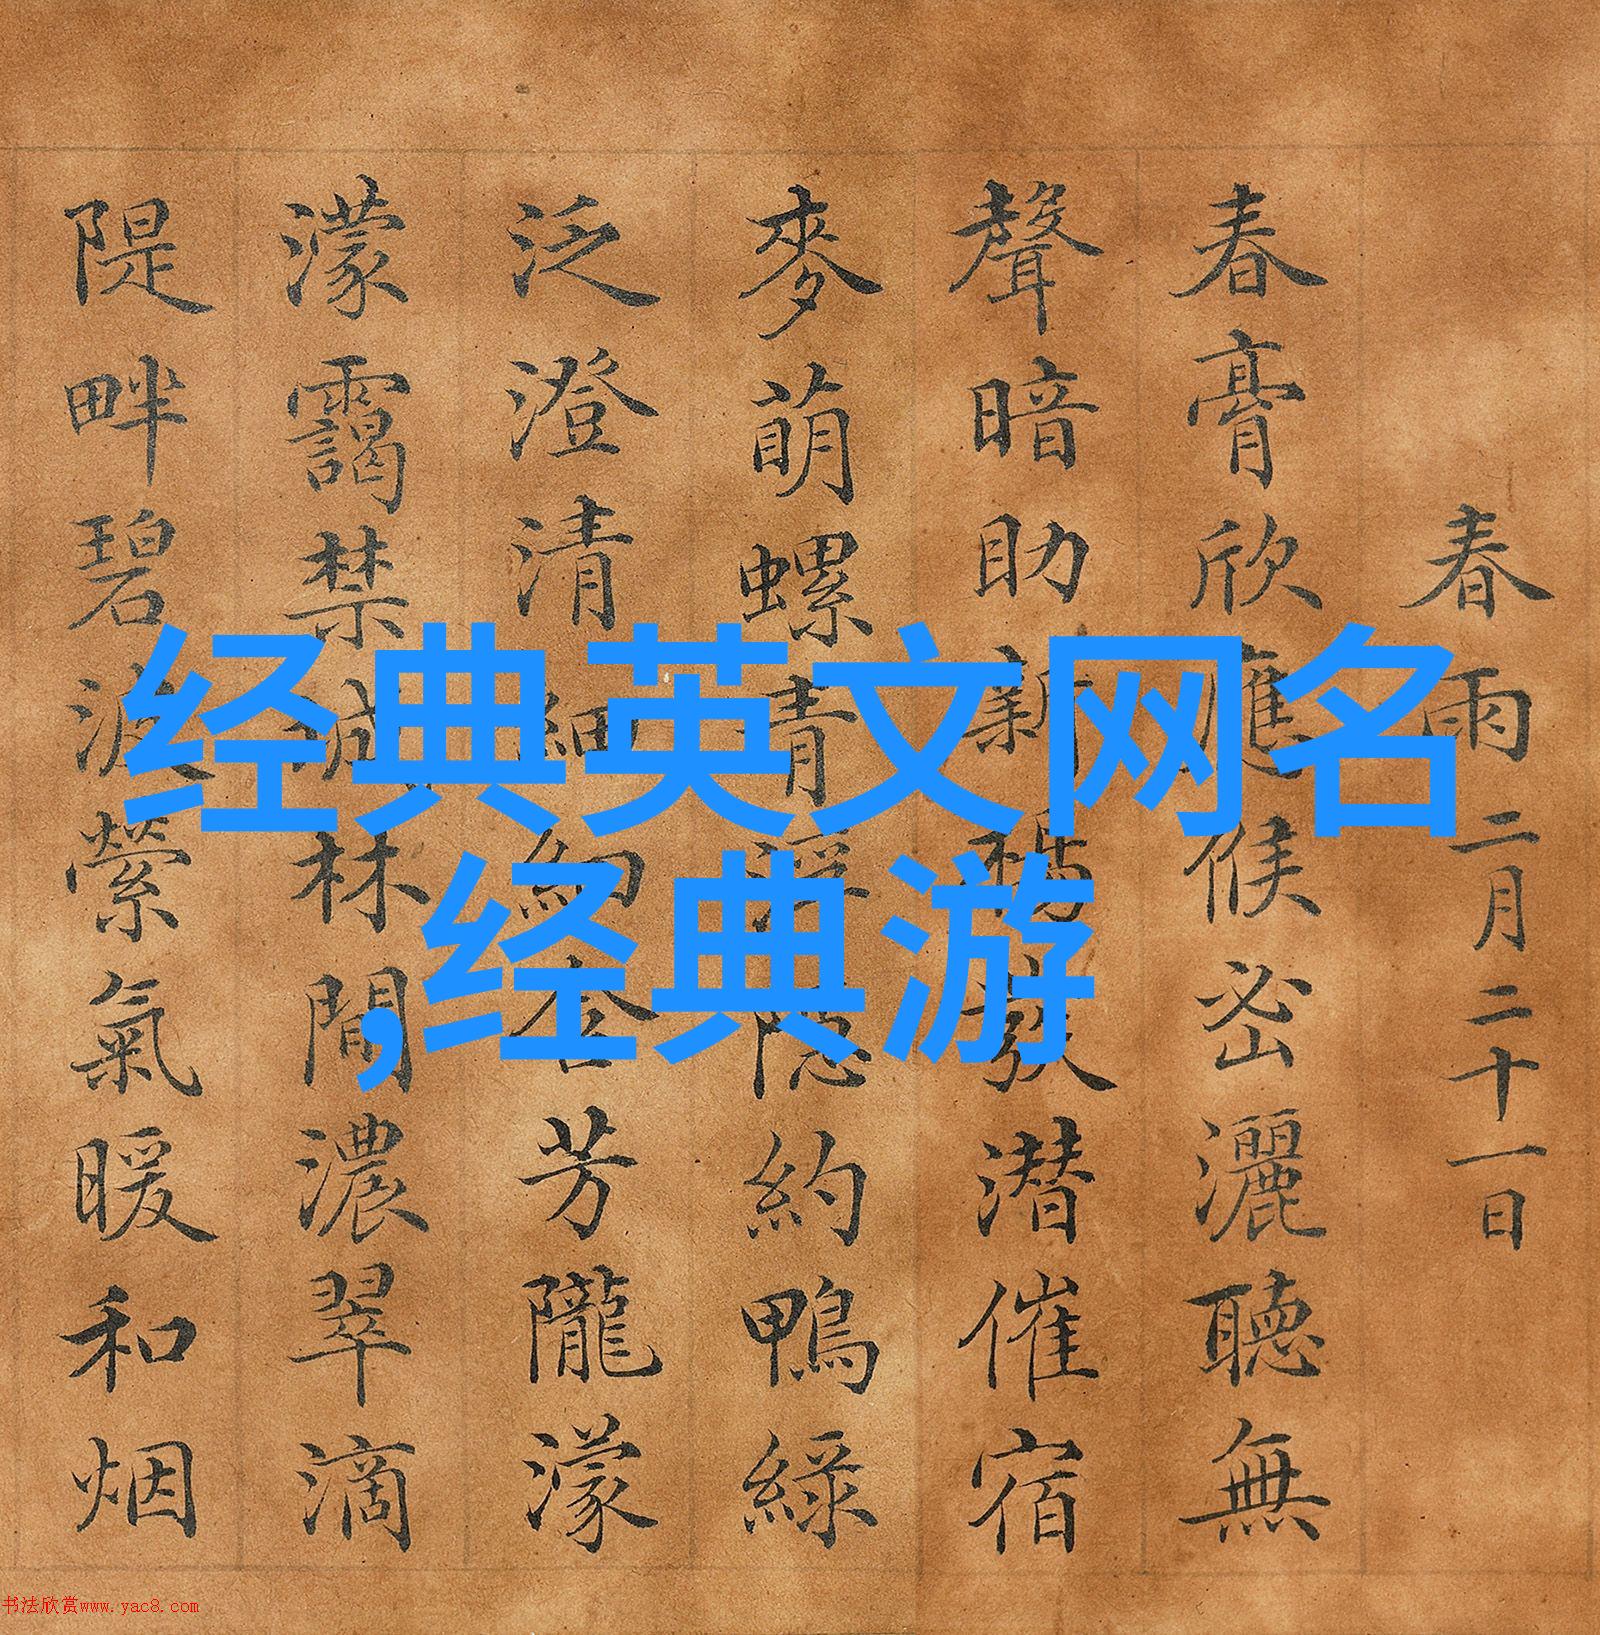 春雨二月二十一日
春膏欣應候密灑聽無
聲暗助新發潛催宿
麥萌螺青浮隱約鴨綠
泛澄清細芳隴濛
濛靄禁城林間濃翠滴
隄畔碧縈氣暖和烟
经典英文网名
,经典游
书法欣赏www.yac8.com